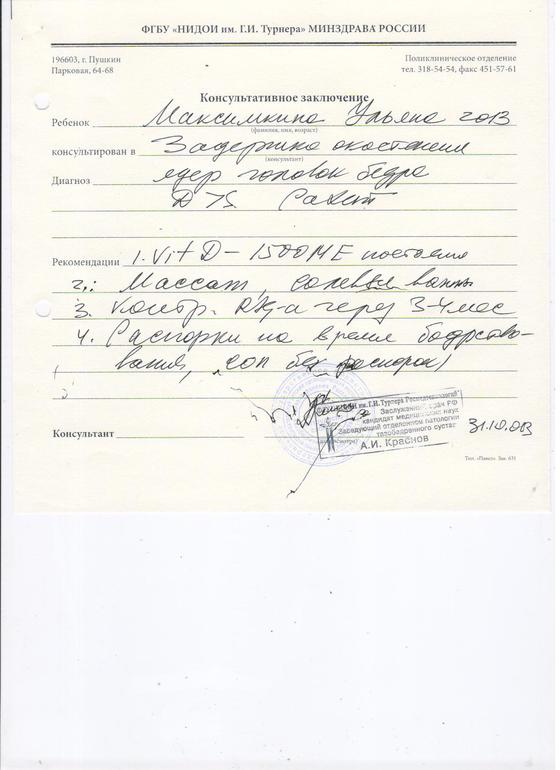 ФГБУ «НИДОИ им. Г.И. Турнера» МИНЗДРАВА РОССИИ
196603, г. Пушкин
Парковая, 64-68
Поликлиническое отделение
тел. 318-54-54, факс 451-57-61
Консультативное заключение
Ребенок Максимкина Ульяна 2013
(фамилия, имя, возраст)
консультирован в Задержка окостенения
(консультант)
Диагноз ядер головок бедра
D>S. Рахит
Рекомендации 1. Vit D - 1500 МЕ постоянно
2. Массаж, солевые ванны
3. Контр. Rg-а через 3-4 мес
4. Распорки на время бодрство-
вания, (сон без распорок)
им. Г.И. Турнера
Заслуженный врач РФ
кандидат медицинских наук
Заведующий отделением патологии
тазобедренного сустава
А.И. Краснов
31.10.013
Консультант
Тип. «Павел». Зак. 631